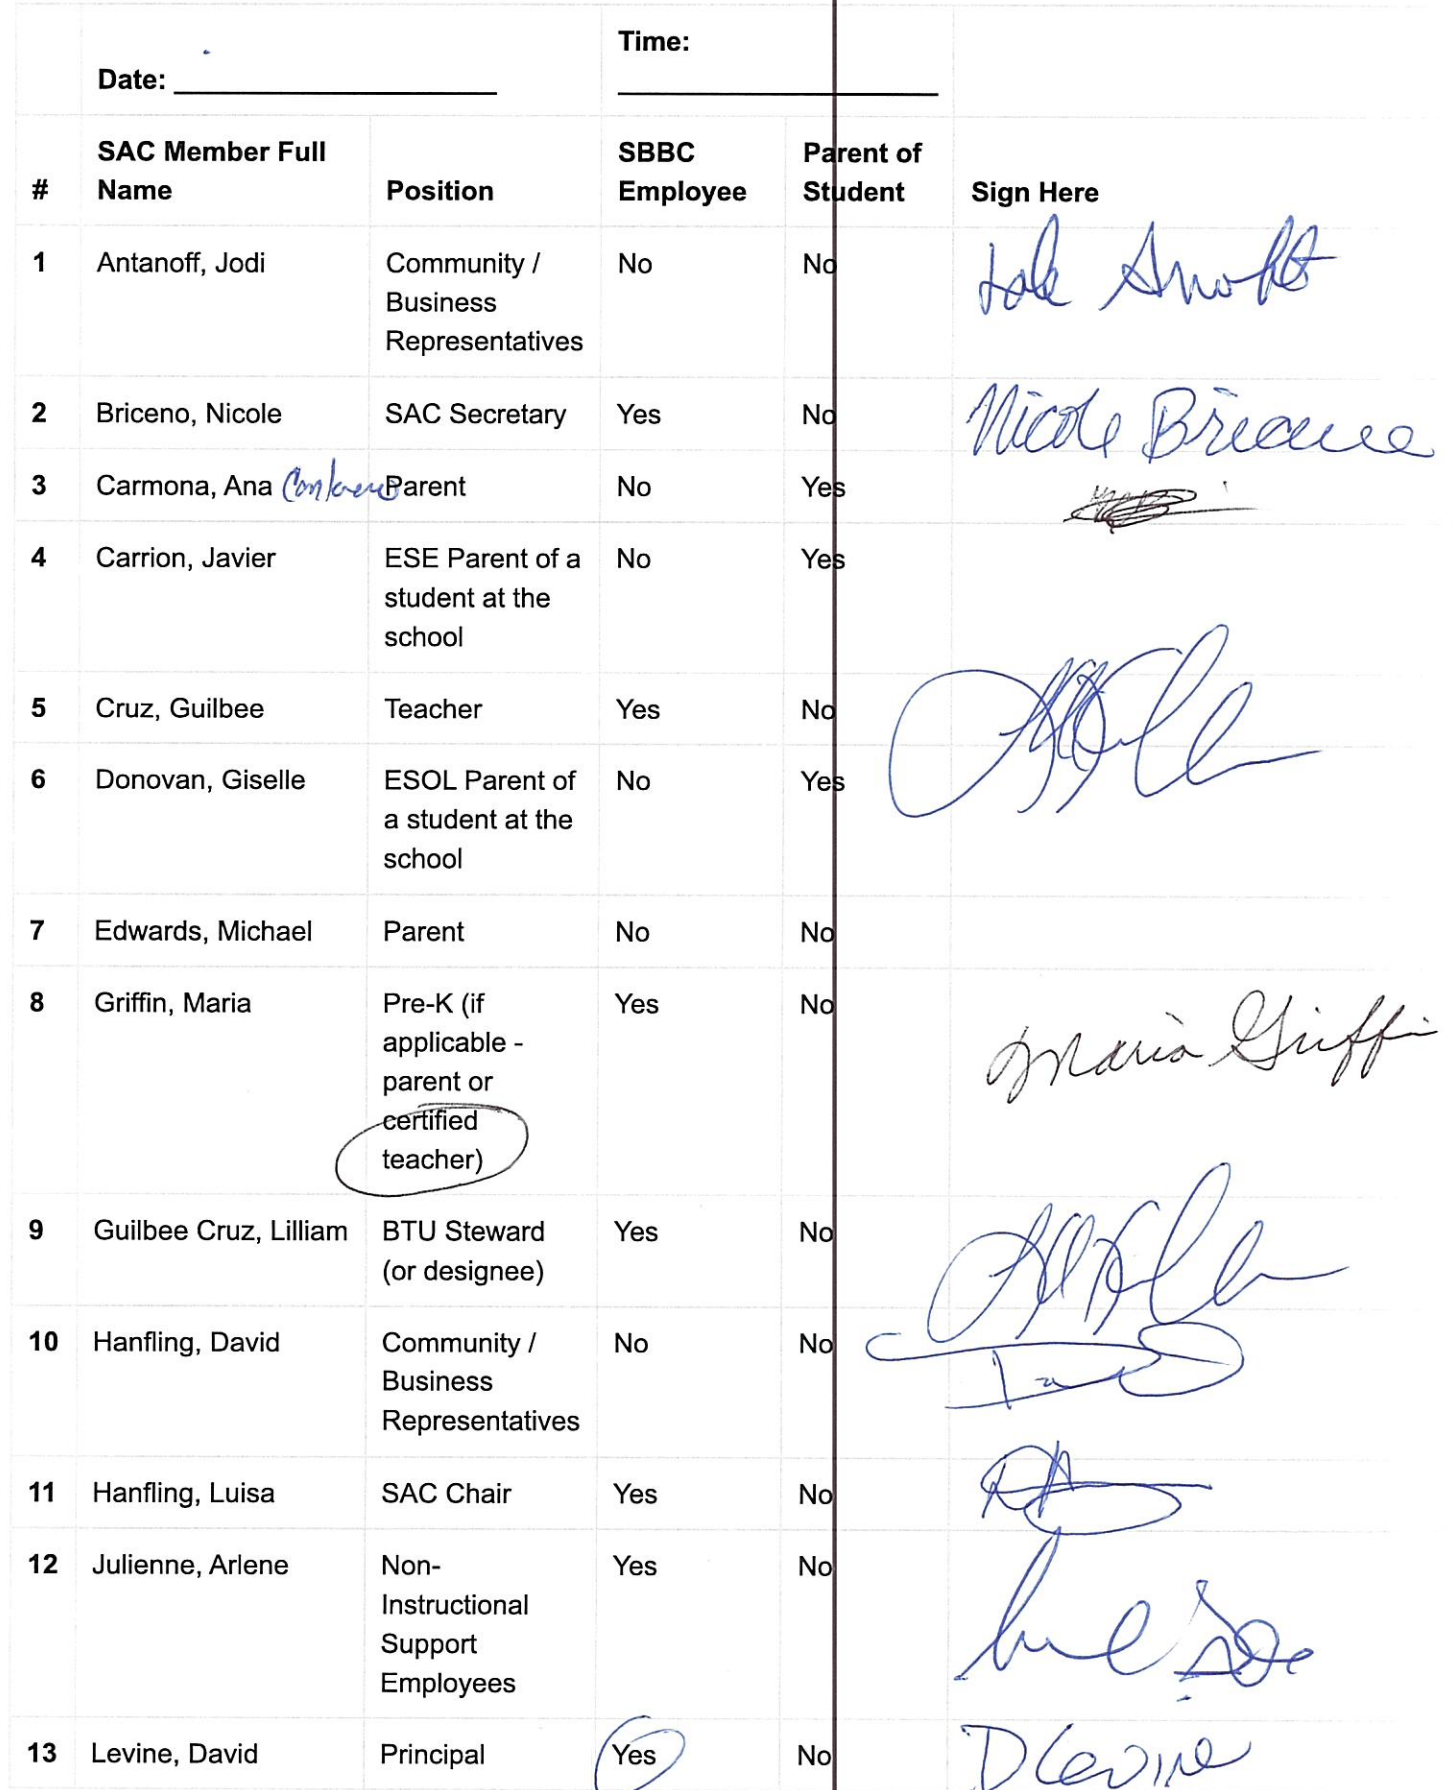 Time:
Date:
SAC Member Full Name Position SBBC Employee Parent of Student Sign Here
#
1 Antanoff, Jodi Community / No No
Business
Representatives
2 Briceno, Nicole SAC Secretary Yes No Nicole
3 Carmona, Ana Parent No Yes
4 Carrion, Javier ESE Parent of a No Yes
student at the
school
5 Cruz, Guilbee Teacher Yes No
6 Donovan, Giselle ESOL Parent of No Yes
a student at the
school
7 Edwards, Michael Parent No No
8 Griffin, Maria Pre-K (if Yes No Maria Griffin
applicable -
parent or
certified
teacher)
9 Guilbee Cruz, Lilliam BTU Steward Yes No
(or designee)
10 Hanfling, David Community / No No
Business
Representatives
11 Hanfling, Luisa SAC Chair Yes No
12 Julienne, Arlene Non- Yes No
Instructional
Support
Employees
13 Levine, David Principal Yes No D Levine